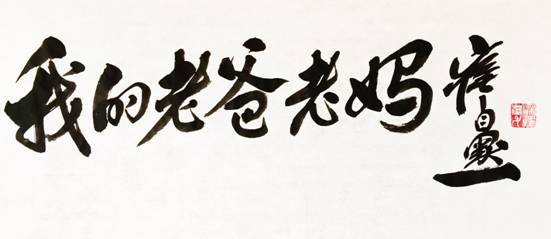 我的老爸老妈